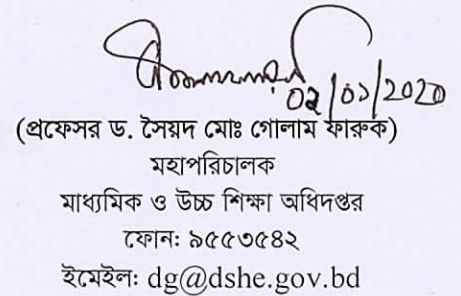 02/01/2020
(প্রফেসর ড. সৈয়দ মোঃ গোলাম ফারুক)
মহাপরিচালক
মাধ্যমিক ও উচ্চ শিক্ষা অধিদপ্তর
ফোনঃ ৯৫৫৩৫৪২
ইমেইলঃ dg@dshe.gov.bd